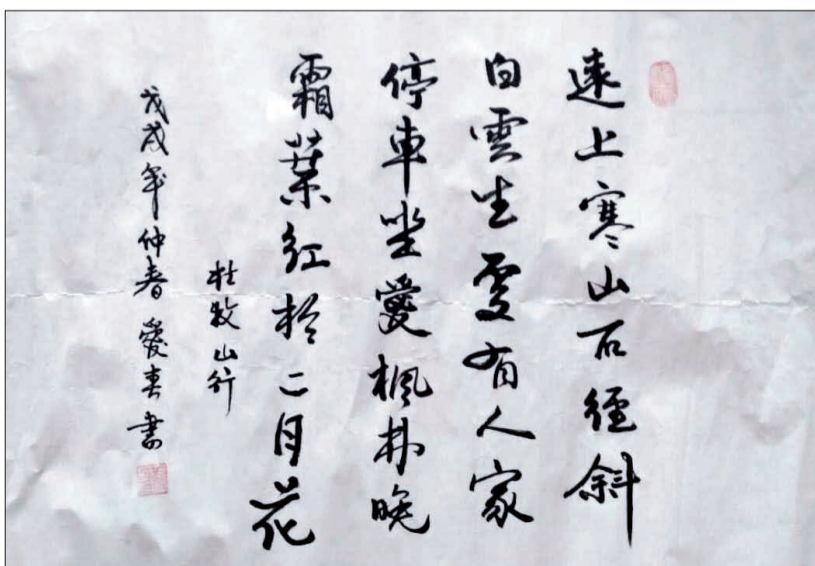 遠上寒山石徑斜
白雲生處有人家
停車坐愛楓林晚
霜葉紅於二月花
杜牧山行
戊戌年仲春愛春書